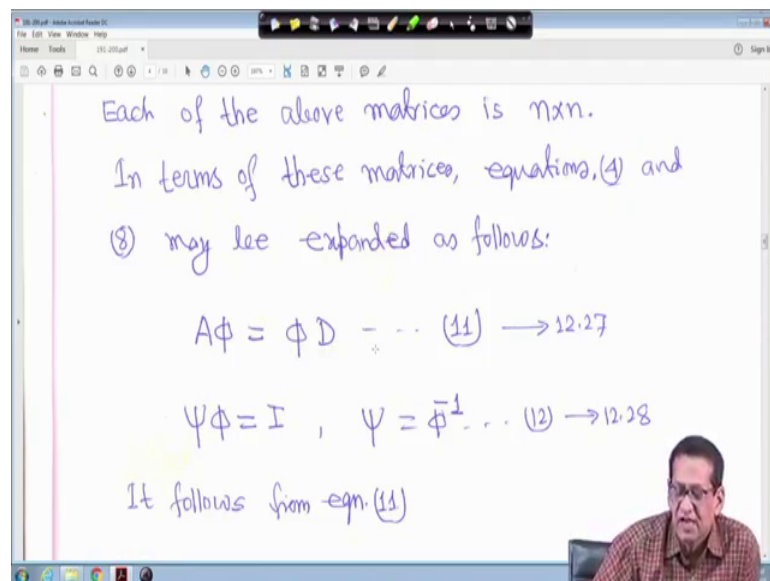 191-200.pdf - Adobe Acrobat Reader DC
File Edit View Window Help
Home Tools 191-200.pdf × Sign In
Each of the above matrices is n×n.
In terms of these matrices, equations,(4) and
(8) may be expanded as follows:
Aϕ = ϕ D - - - (11) → 12.27
Ψϕ = I , Ψ = ϕ⁻¹ . . . (12) → 12.28
It follows from eqn.(11)